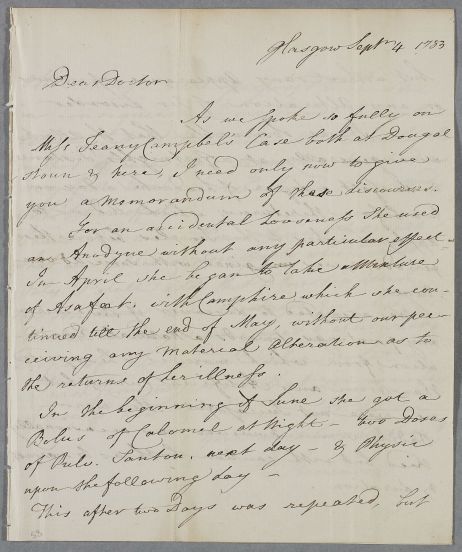 Glasgow Septr. 4 1783
Dear Doctor
As we spoke so fully on
Miss Jeany Campbel's Case both at Dougal
stoun & here, I need only now to give
you a Momorandum of these discourses.
For an accidental Looseness She used
an Anodyne without any particular effect.
In April she began to take a Mixture
of Asafœt. with Camphire which she con-
tinued till the end of May, without our per-
ceiving any Material Alteration as to
the returns of her illness.
In the beginning of June she got a
Bolus of Calomel at Night - two Doses
of Pulv. Santon. next day - & Physic
upon the following day -
This after two Days was repeated, but